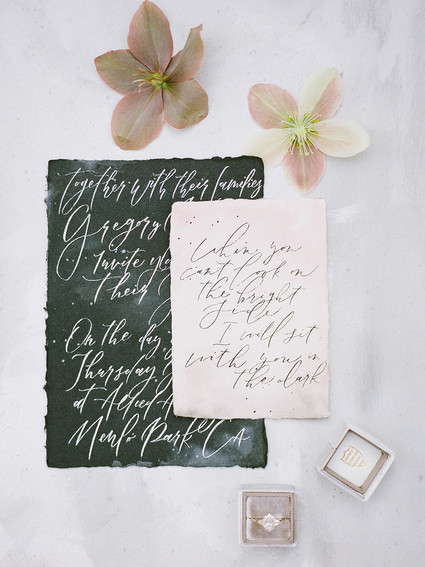 together with their families
Gregory
Invite
their
On the day
Thursday
at
Menlo Park CA
When you
can't look on
the bright
side
I will sit
with you in
the dark